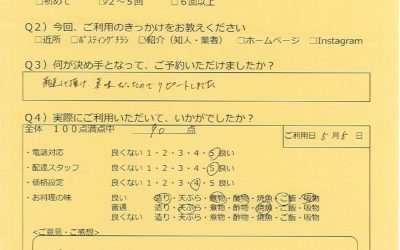 □初めて ☑2～5回 □6回以上
Q2）今回、ご利用のきっかけをお教えください
□近所 □ポスティングチラシ □紹介（知人・業者） □ホームページ □Instagram
Q3）何が決め手となって、ご予約いただけましたか？
美味だったのでリピートしました
Q4）実際にご利用いただいて、いかがでしたか？
全体 100点満点中 90 点
ご利用日 5月5日
・電話対応 良くない 1・2・3・4・5 良い
・配達スタッフ 良くない 1・2・3・4・5 良い
・価格設定 良くない 1・2・3・4・5 良い
・お料理の味 良い 造り・天ぷら・煮物・酢物・焼魚・ご飯・吸物
普通 造り・天ぷら・煮物・酢物・焼魚・ご飯・吸物
良くない 造り・天ぷら・煮物・酢物・焼魚・ご飯・吸物
＜ご意見・ご感想＞